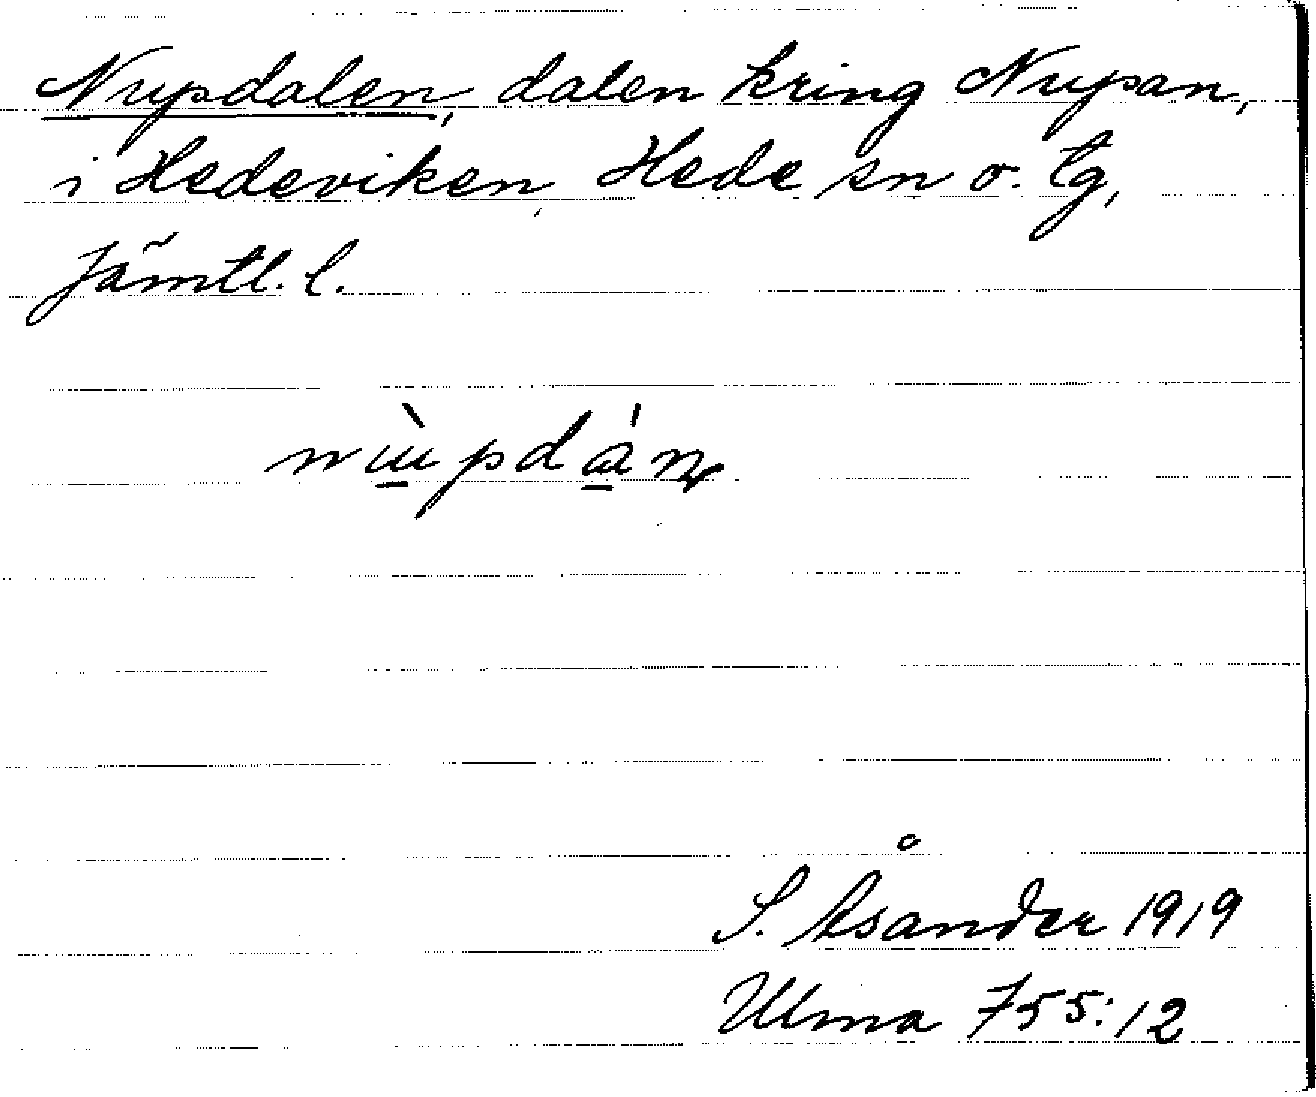 Nupdalen, dalen kring Nupan,
i Hedeviken, Hede sn o. tg,
Jämtl. l.
S. Åsander 1919
Ulma 755:12